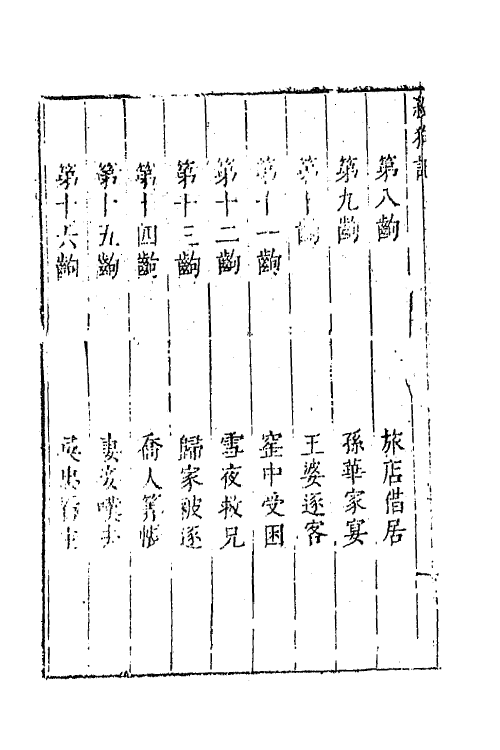 殺狗記
第八齣　旅店借居
第九齣　孫華家宴
第十齣　王婆逐客
第十一齣　窰中受困
第十二齣　雪夜救兄
第十三齣　歸家被逐
第十四齣　喬人筭帳
第十五齣　妻妾嘆夫
第十六齣　吳忠看主